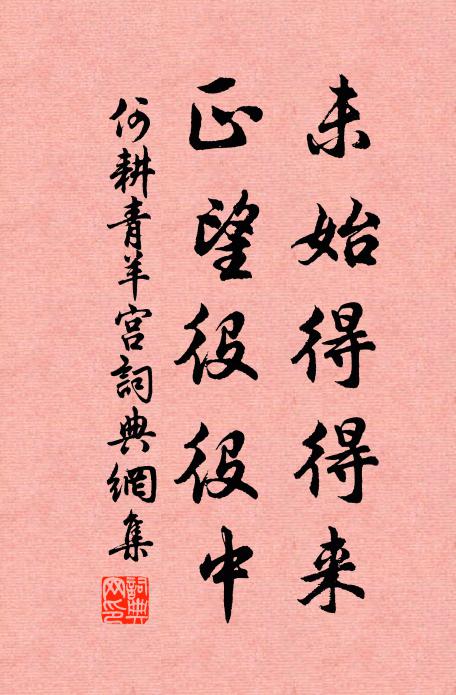 未始得得来
正望役役中
何耕青羊宫詞典網集
詞典
网印